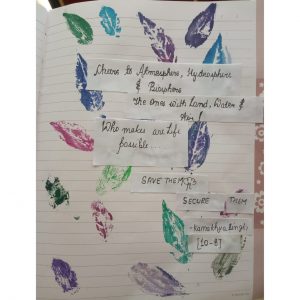 Cheers to Atmosphere, Hydrosphere
& Biosphere
The ones with Land, Water &
Air!
Who makes are life
possible...
SAVE THEM
SECURE THEM
-Kamakhya Singh
[10-B]